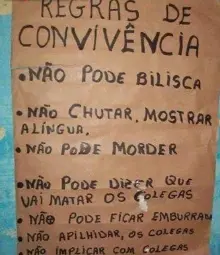 REGRAS DE
CONVIVÊNCIA
• NÃO PODE BILISCA
• NÃO CHUTAR, MOSTRAR
A LÍNGUA.
• NÃO PODE MORDER
• NÃO PODE DIZER QUE
VAI MATAR OS COLEGAS
• NÃO PODE FICAR EMBURRAN
• NÃO APILHIDAR, OS COLEGAS
• NÃO IMPLICAR COM COLEGAS